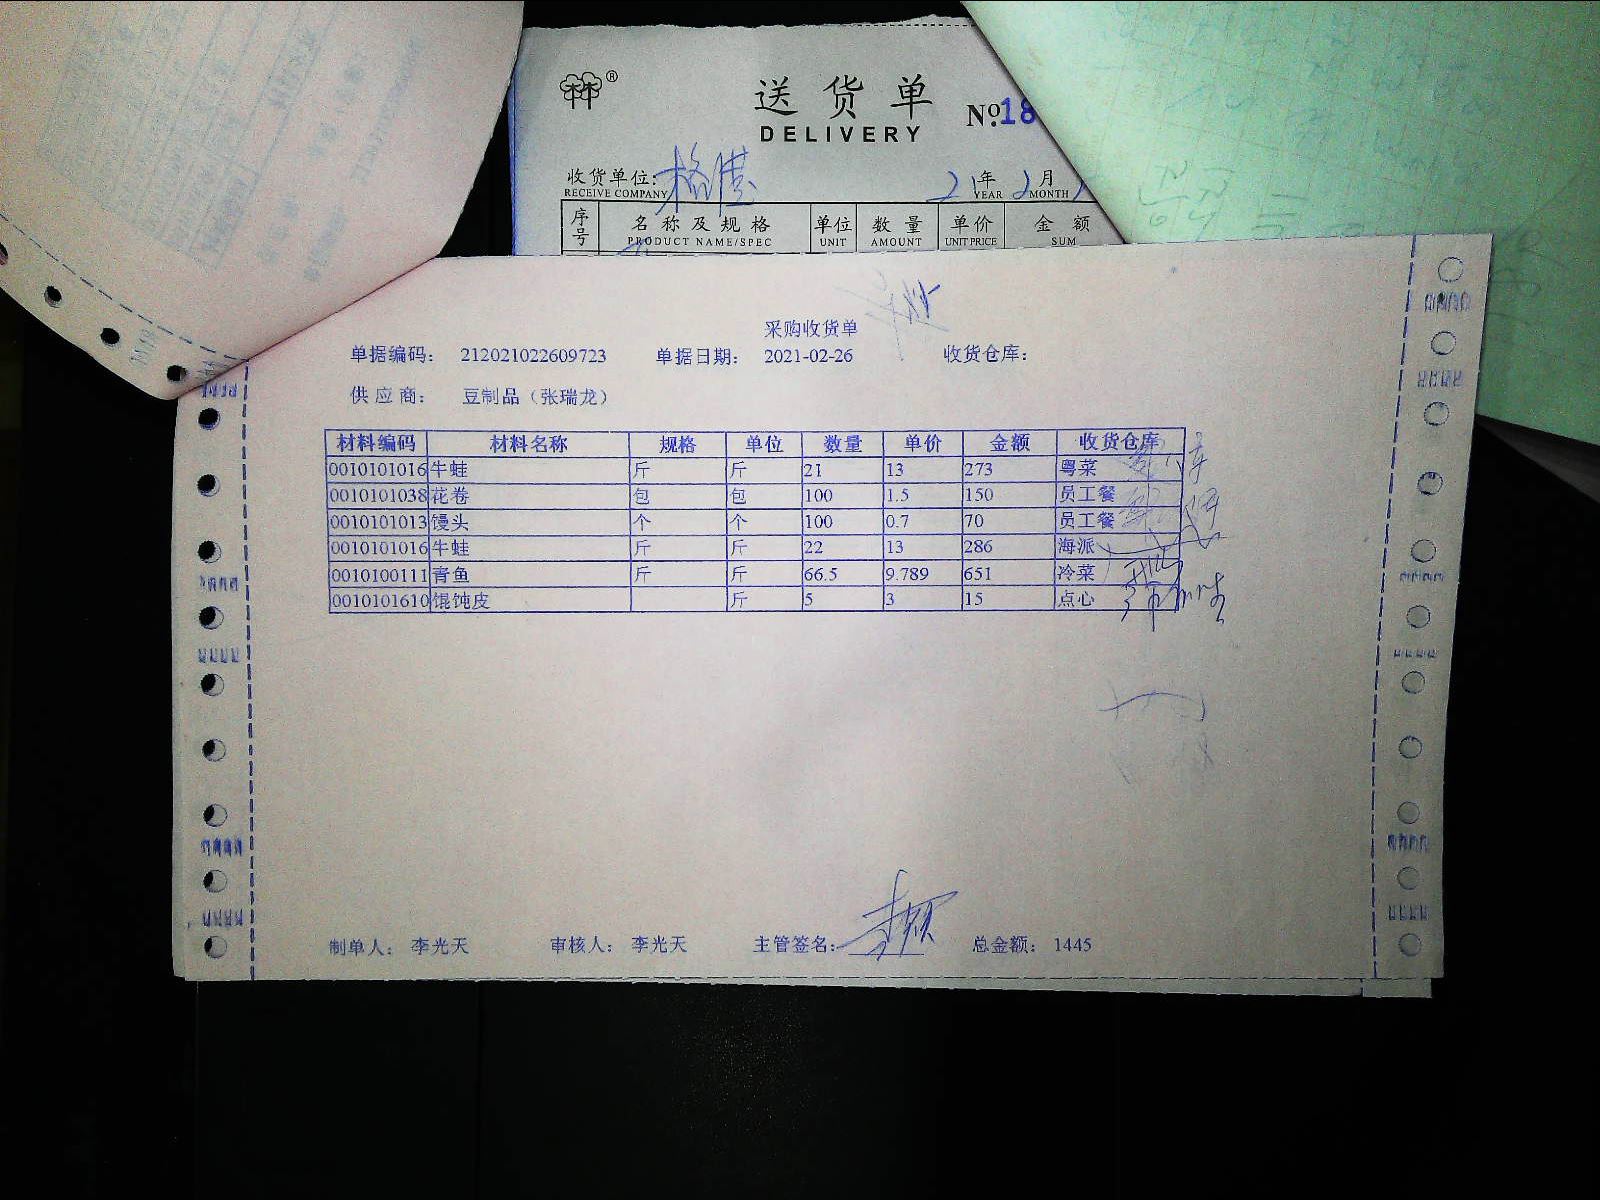 送货单
DELIVERY
№18
收货单位:
RECEIVE COMPANY
21年 2月
YEAR MONTH
序号 名称及规格 单位 数量 单价 金额
PRODUCT NAME/SPEC UNIT AMOUNT UNIT PRICE SUM
采购收货单
单据编码: 212021022609723 单据日期: 2021-02-26 收货仓库:
供应商: 豆制品（张瑞龙）
材料编码 材料名称 规格 单位 数量 单价 金额 收货仓库
0010101016 牛蛙 斤 斤 21 13 273 粤菜
0010101038 花卷 包 包 100 1.5 150 员工餐
0010101013 馒头 个 个 100 0.7 70 员工餐
0010101016 牛蛙 斤 斤 22 13 286 海派
0010100111 青鱼 斤 斤 66.5 9.789 651 冷菜
0010101610 馄饨皮 斤 5 3 15 点心
制单人: 李光天 审核人: 李光天 主管签名: 总金额: 1445